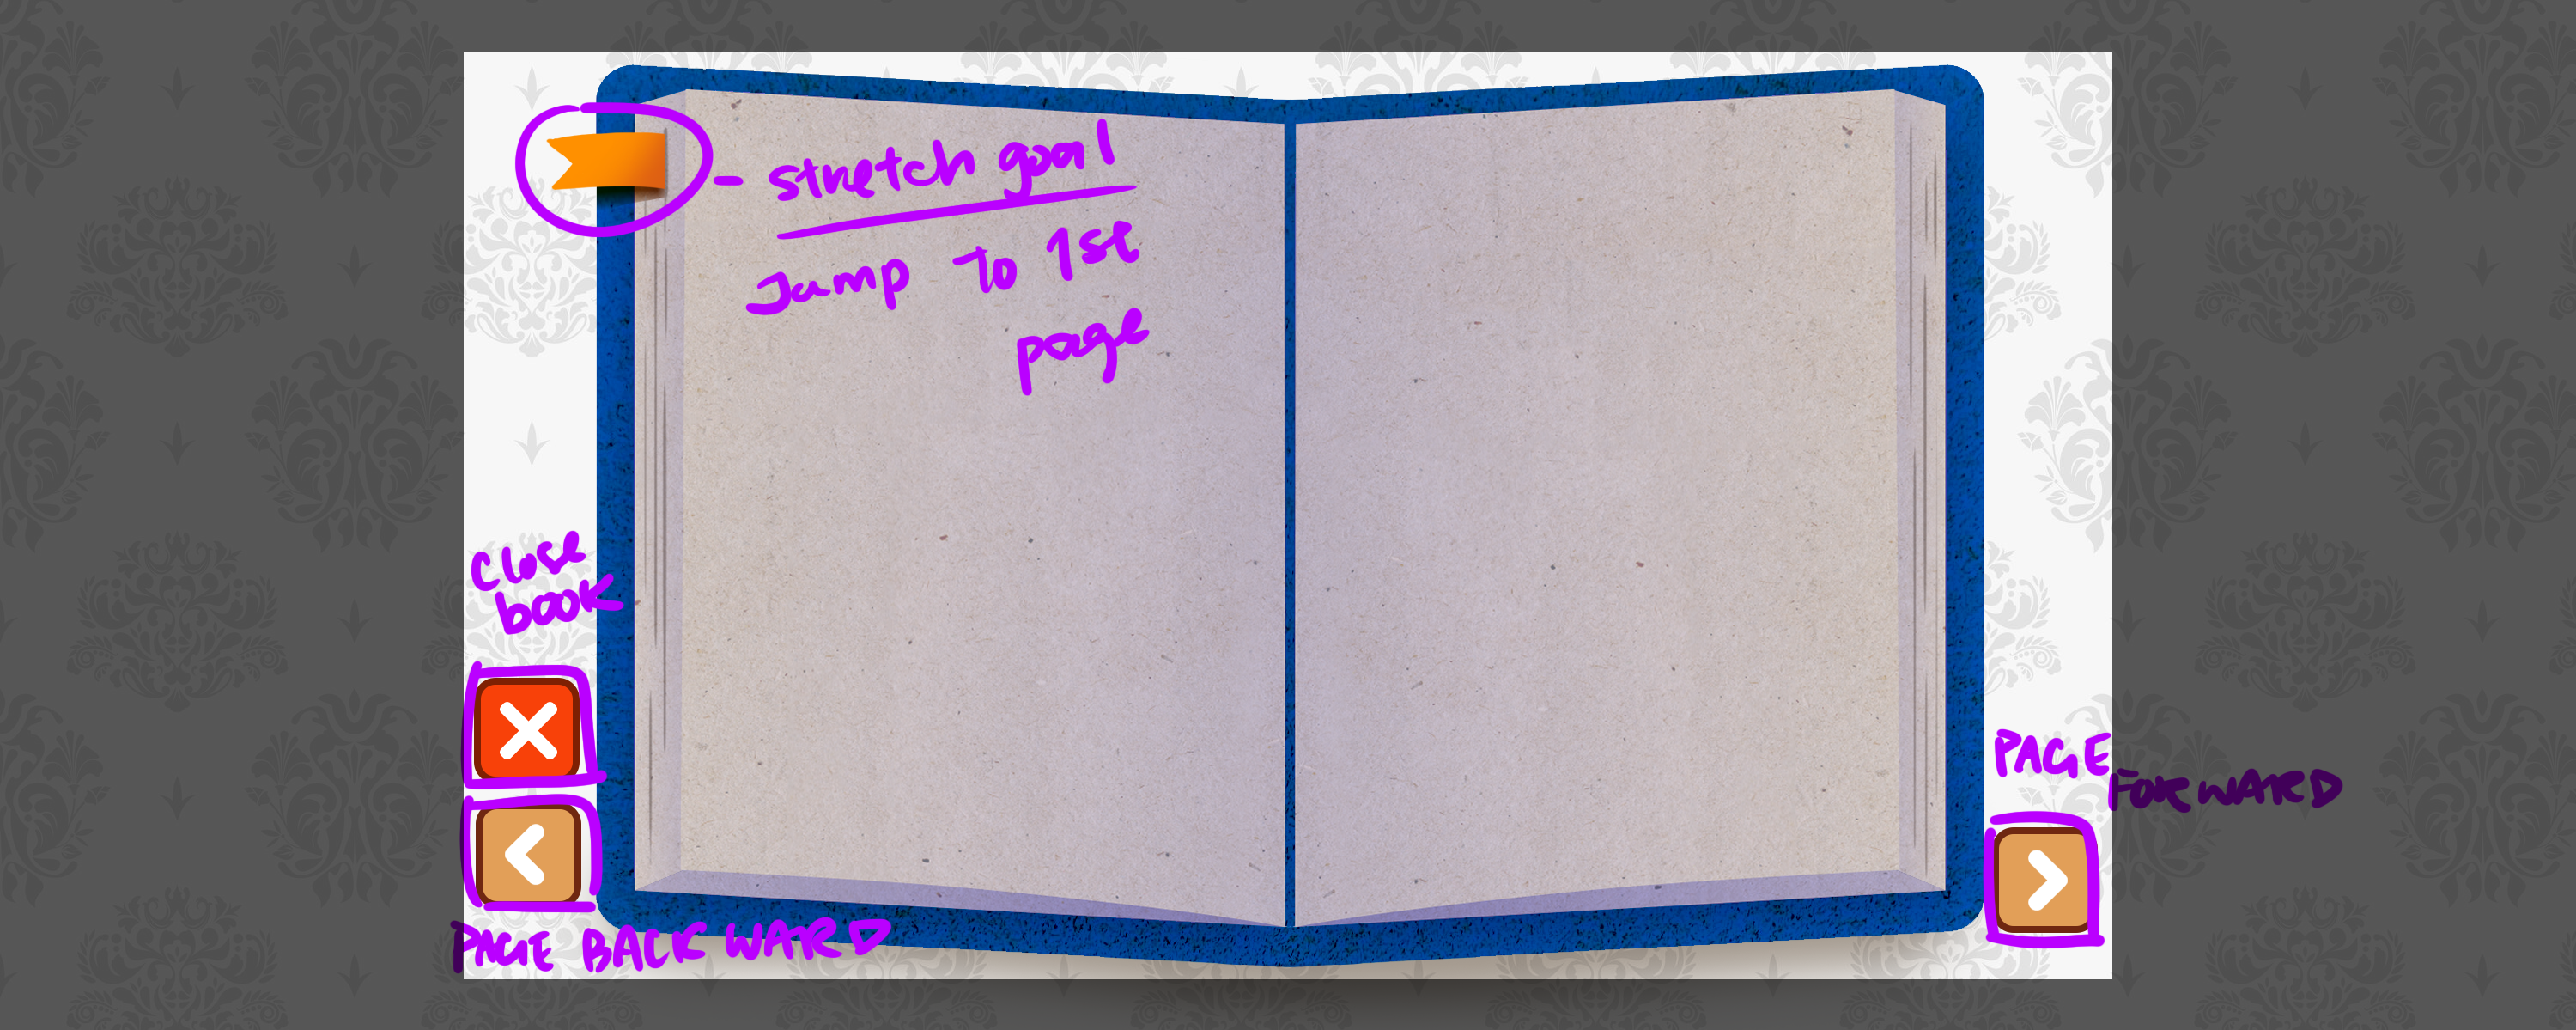 - stretch goal
Jump to 1st
page
close
book
PAGE
FORWARD
PAGE BACKWARD